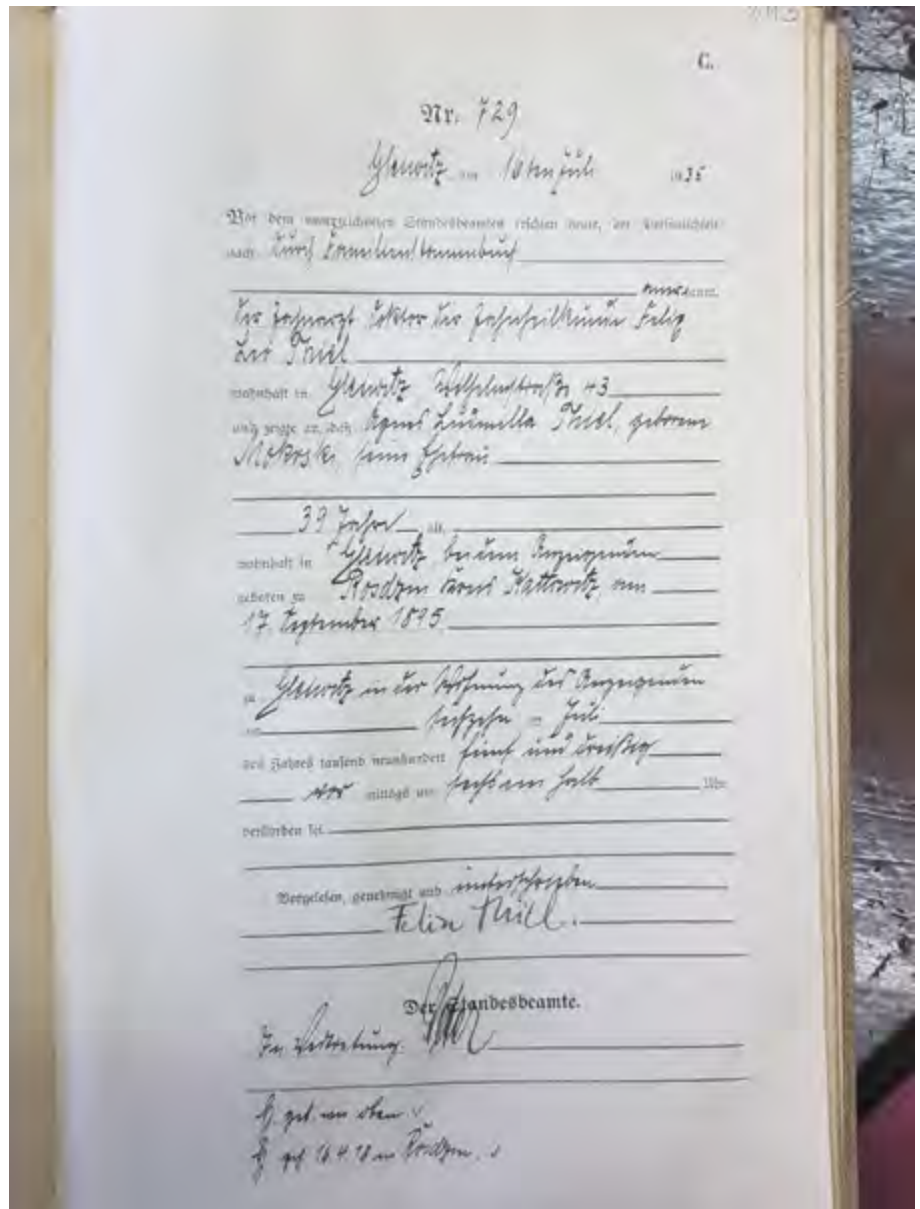 C.
Nr. 729
Gleiwitz am 16ten Juli 1935
Vor dem unterzeichneten Standesbeamten erschien heute, der Persönlichkeit
nach durch Familienstammbuch
anerkannt,
der Zahnarzt Doktor der Zahnheilkunde Felix
Thiel
wohnhaft in Gleiwitz Wilhelmstraße 43
und zeigte an, daß Agnes Ludmilla Thiel, geborene
Mokrski, seine Ehefrau
39 Jahre alt,
wohnhaft in Gleiwitz bei dem Anzeigenden
geboren zu Rosdzin Kreis Kattowitz, am
17. September 1895
zu Gleiwitz in der Wohnung des Anzeigenden
am sechzehn ten Juli
des Jahres tausend neunhundert fünf und dreißig
vor mittags um sechs ein halb Uhr
verstorben sei.
Vorgelesen, genehmigt und unterschrieben
Felix Thiel.
Der Standesbeamte.
In Vertretung.
get. wie oben.
16.4.18 in Rosdzin.